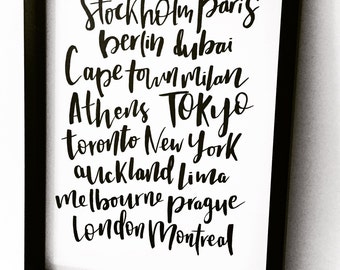 Stockholm Paris
berlin dubai
Cape town milan
Athens TOKYO
toronto New York
auckland Lima
melbourne prague
London Montreal